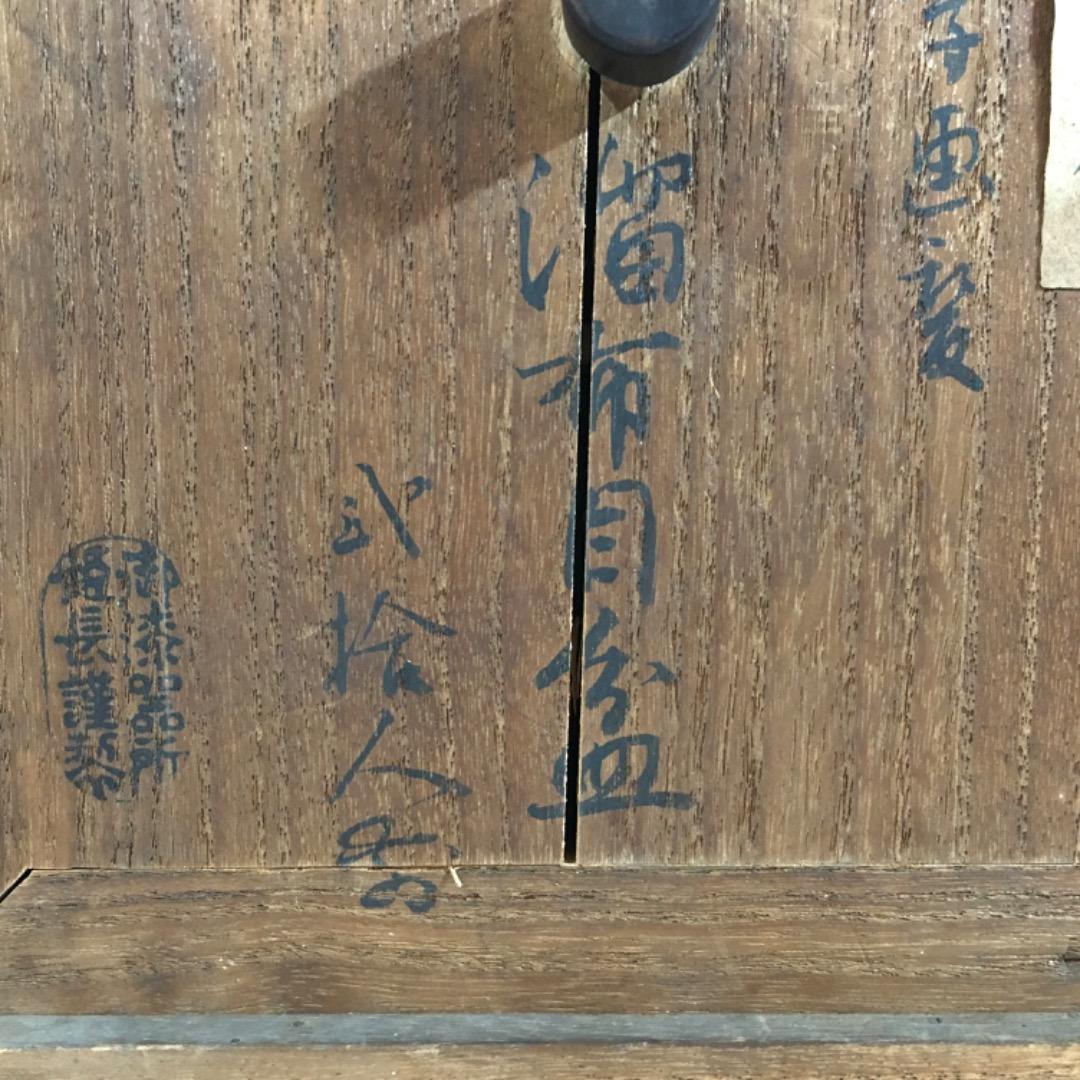 子画
溜布目盆
弐拾人前
御漆器所
長謹製